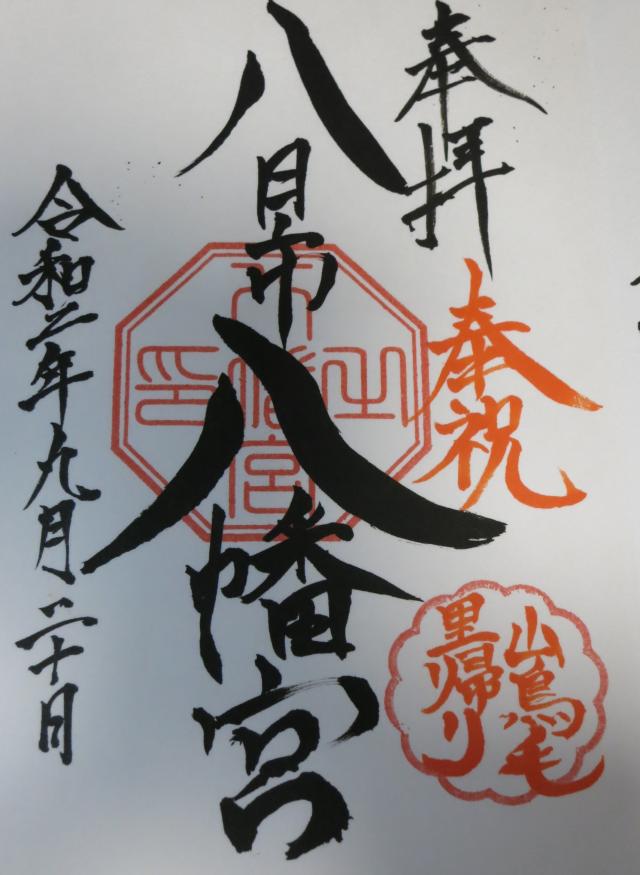 奉拝
奉祝
山鳥毛
里帰り
八日市八幡宮
令和二年九月二十日